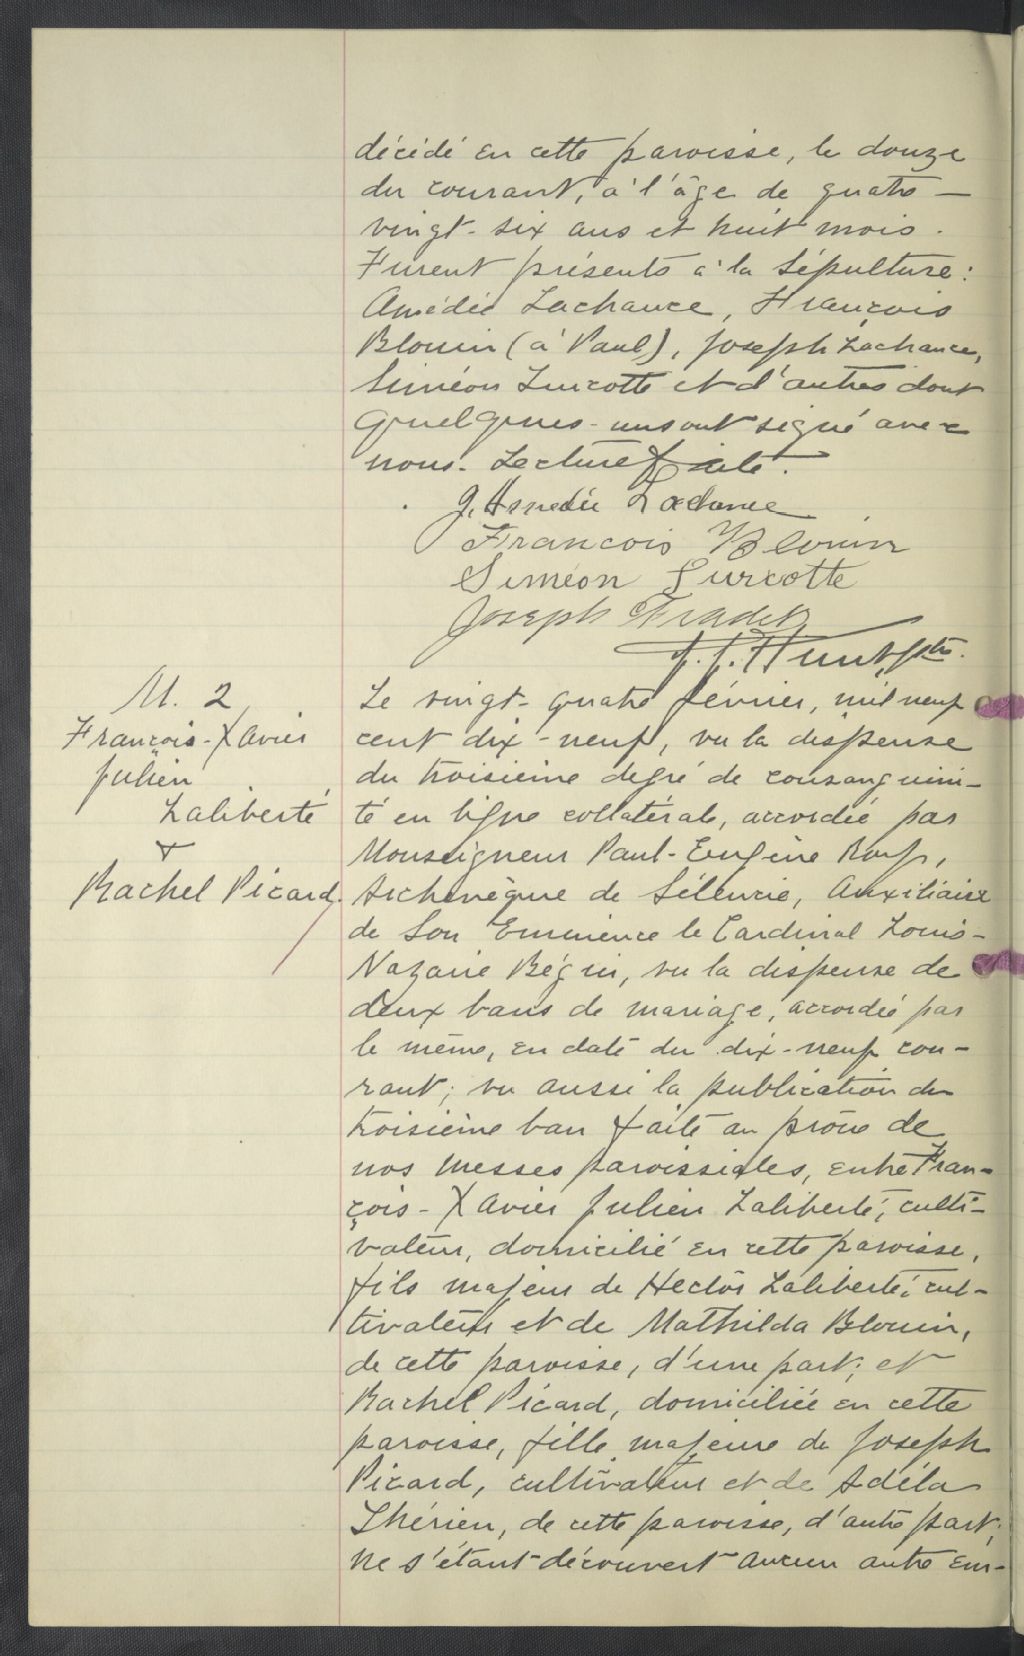 décédé en cette paroisse, le douze
du courant, à l'âge de quatre-
vingt-six ans et huit mois.
Furent présents à la sépulture:
Amédée Lachance, François
Blouin (à Paul), Joseph Lachance,
Siméon Turcotte et d'autres dont
quelques-uns ont signé avec
nous. Lecture faite.
J. Amédée Lachance
Francois Blouin
Siméon Turcotte
Joseph Fradet
ptre.
M. 2
François-Xavier
Julien
Laliberté
+
Rachel Picard.
Le vingt-quatre février, mil neuf
cent dix-neuf, vu la dispense
du troisième degré de consanguini-
té en ligne collatérale, accordée par
Monseigneur Paul-Eugène Roy,
Archevêque de Séleucie, Auxiliaire
de Son Eminence le Cardinal Louis-
Nazaire Bégin, vu la dispense de
deux bans de mariage, accordée par
le même, en date du dix-neuf cou-
rant; vu aussi la publication du
troisième ban faite au prône de
nos messes paroissiales, entre Fran-
çois-Xavier Julien Laliberté, culti-
vateur, domicilié en cette paroisse,
fils majeur de Hector Laliberté, cul-
tivateur et de Mathilda Blouin,
de cette paroisse, d'une part; et
Rachel Picard, domiciliée en cette
paroisse, fille majeure de Joseph
Picard, cultivateur et de Adéla
Thérien, de cette paroisse, d'autre part;
ne s'étant découvert aucun autre em-